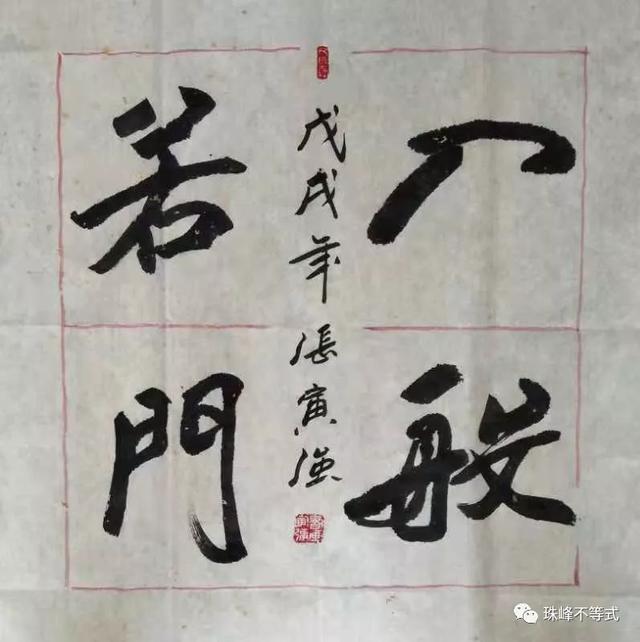 入般
若門
戊戌年張寅强
珠峰不等式